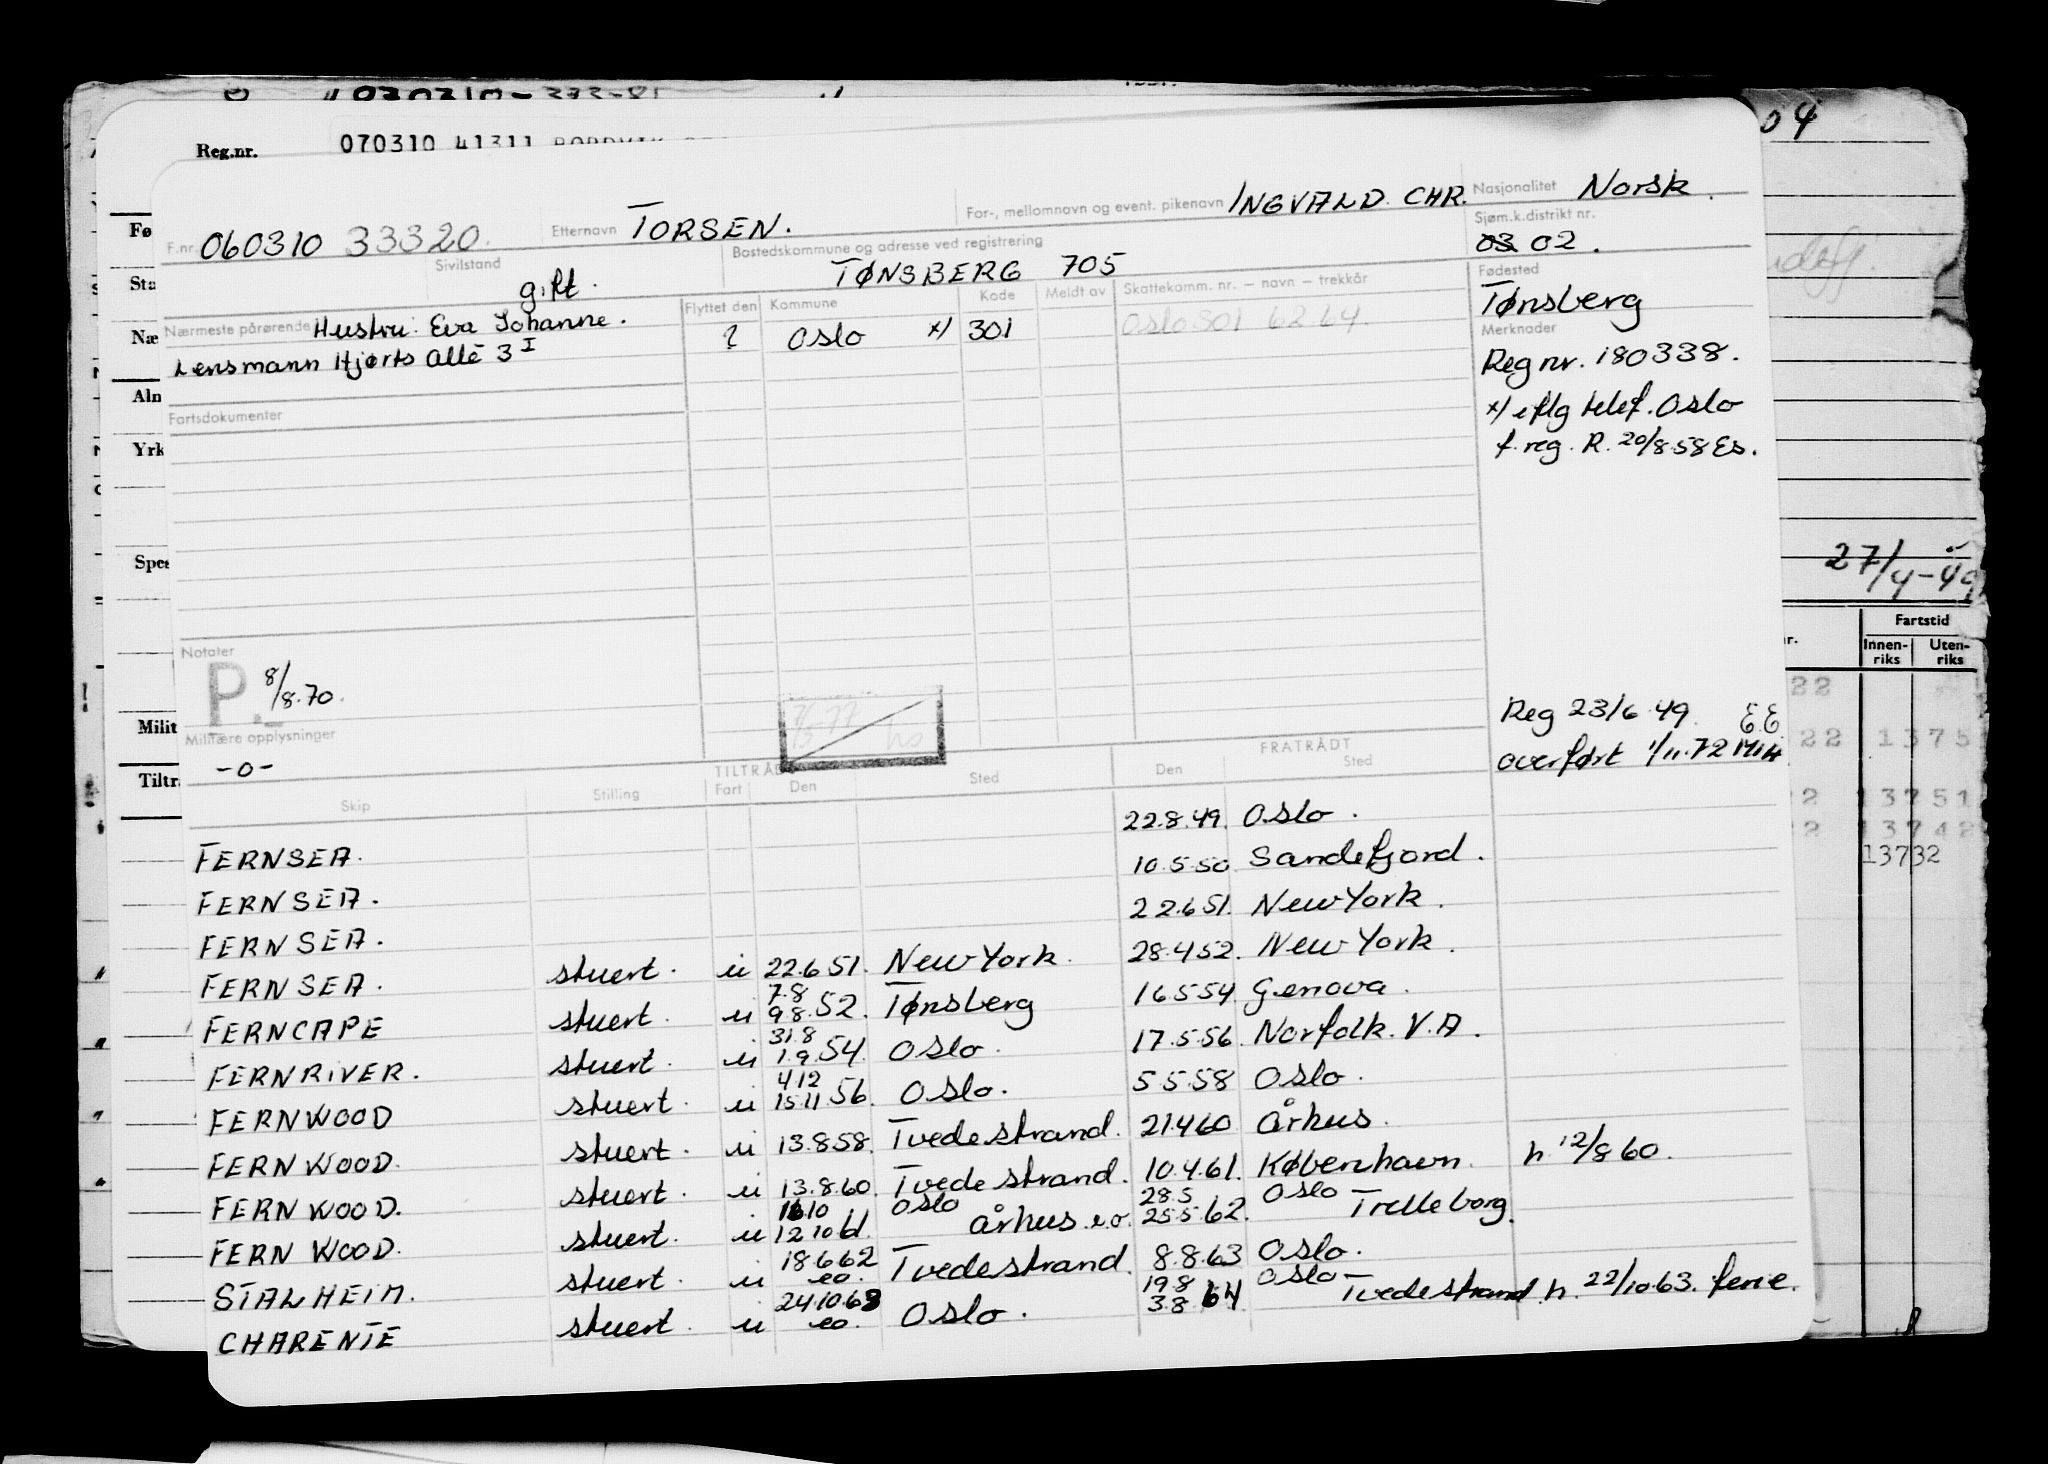 04
Reg.nr. 070310 41311
F.nr. 060310 33320. Etternavn TORSEN. For-, mellomnavn og event. pikenavn INGVALD CHR. Nasjonalitet Norsk.
Sivilstand gift. Bostedskommune og adresse ved registrering TØNSBERG 705 Sjøm.k.distrikt nr. 03 02.
Nærmeste pårørende Hustru: Eva Johanne.
Lensmann Hjorts allè 3 I
Flyttet den Kommune Kode Meldt av Skattekomm. nr. – navn – trekkår
? Oslo x/ 301 Oslo 301 62 64.
Fødested
Tønsberg
Merknader
Reg nr. 180338.
x/ iflg telef. Oslo
f. reg. R. 20/8.58 Es.
Fartsdokumenter
27/4-49
Fartstid
Innen-riks Uten-riks
Notater
P. 8/8.70.
Militære opplysninger
-o-
Reg 23/6 49. EE
overført 1/11.72
22
22 1375
2 13751
2 13742
13732
TILTRÅDT FRATRÅDT
Skip Stilling Fart Den Sted Den Sted
FERNSEA. 22.8.49. Oslo.
FERNSEA. 10.5.50 Sandefjord.
FERNSEA. 22.6 51. New York.
FERNSEA. stuert. u 22.6 51. New York. 28.4 52. New York.
FERNCAPE stuert. u 7.8 9.8.52. Tønsberg 16.5 54. Genova.
FERNRIVER. stuert. u 31.8 1.9.54. Oslo. 17.5.56. Norfolk. V.A.
FERNWOOD stuert. u 4.12 15.11.56. Oslo. 5.5.58 Oslo.
FERNWOOD. stuert. u 13.8 58. Tvedestrand. 21.4 60 Århus.
FERNWOOD. stuert. u 13.8.60. Tvedestrand. 10.4.61. København. h. 12/8 60.
FERN WOOD. stuert. u 16.10 12.10 61. Oslo Århus e.o. 28.5 25.5.62. Oslo Trelleborg.
STALHEIM. stuert. u 18.6 62 eo. Tvedestrand. 8.8.63 Oslo.
CHARENTE stuert. u 24.10.63 eo. Oslo. 19.8 3.8 64 Oslo Tvedestrand. h. 22/10.63. ferie.